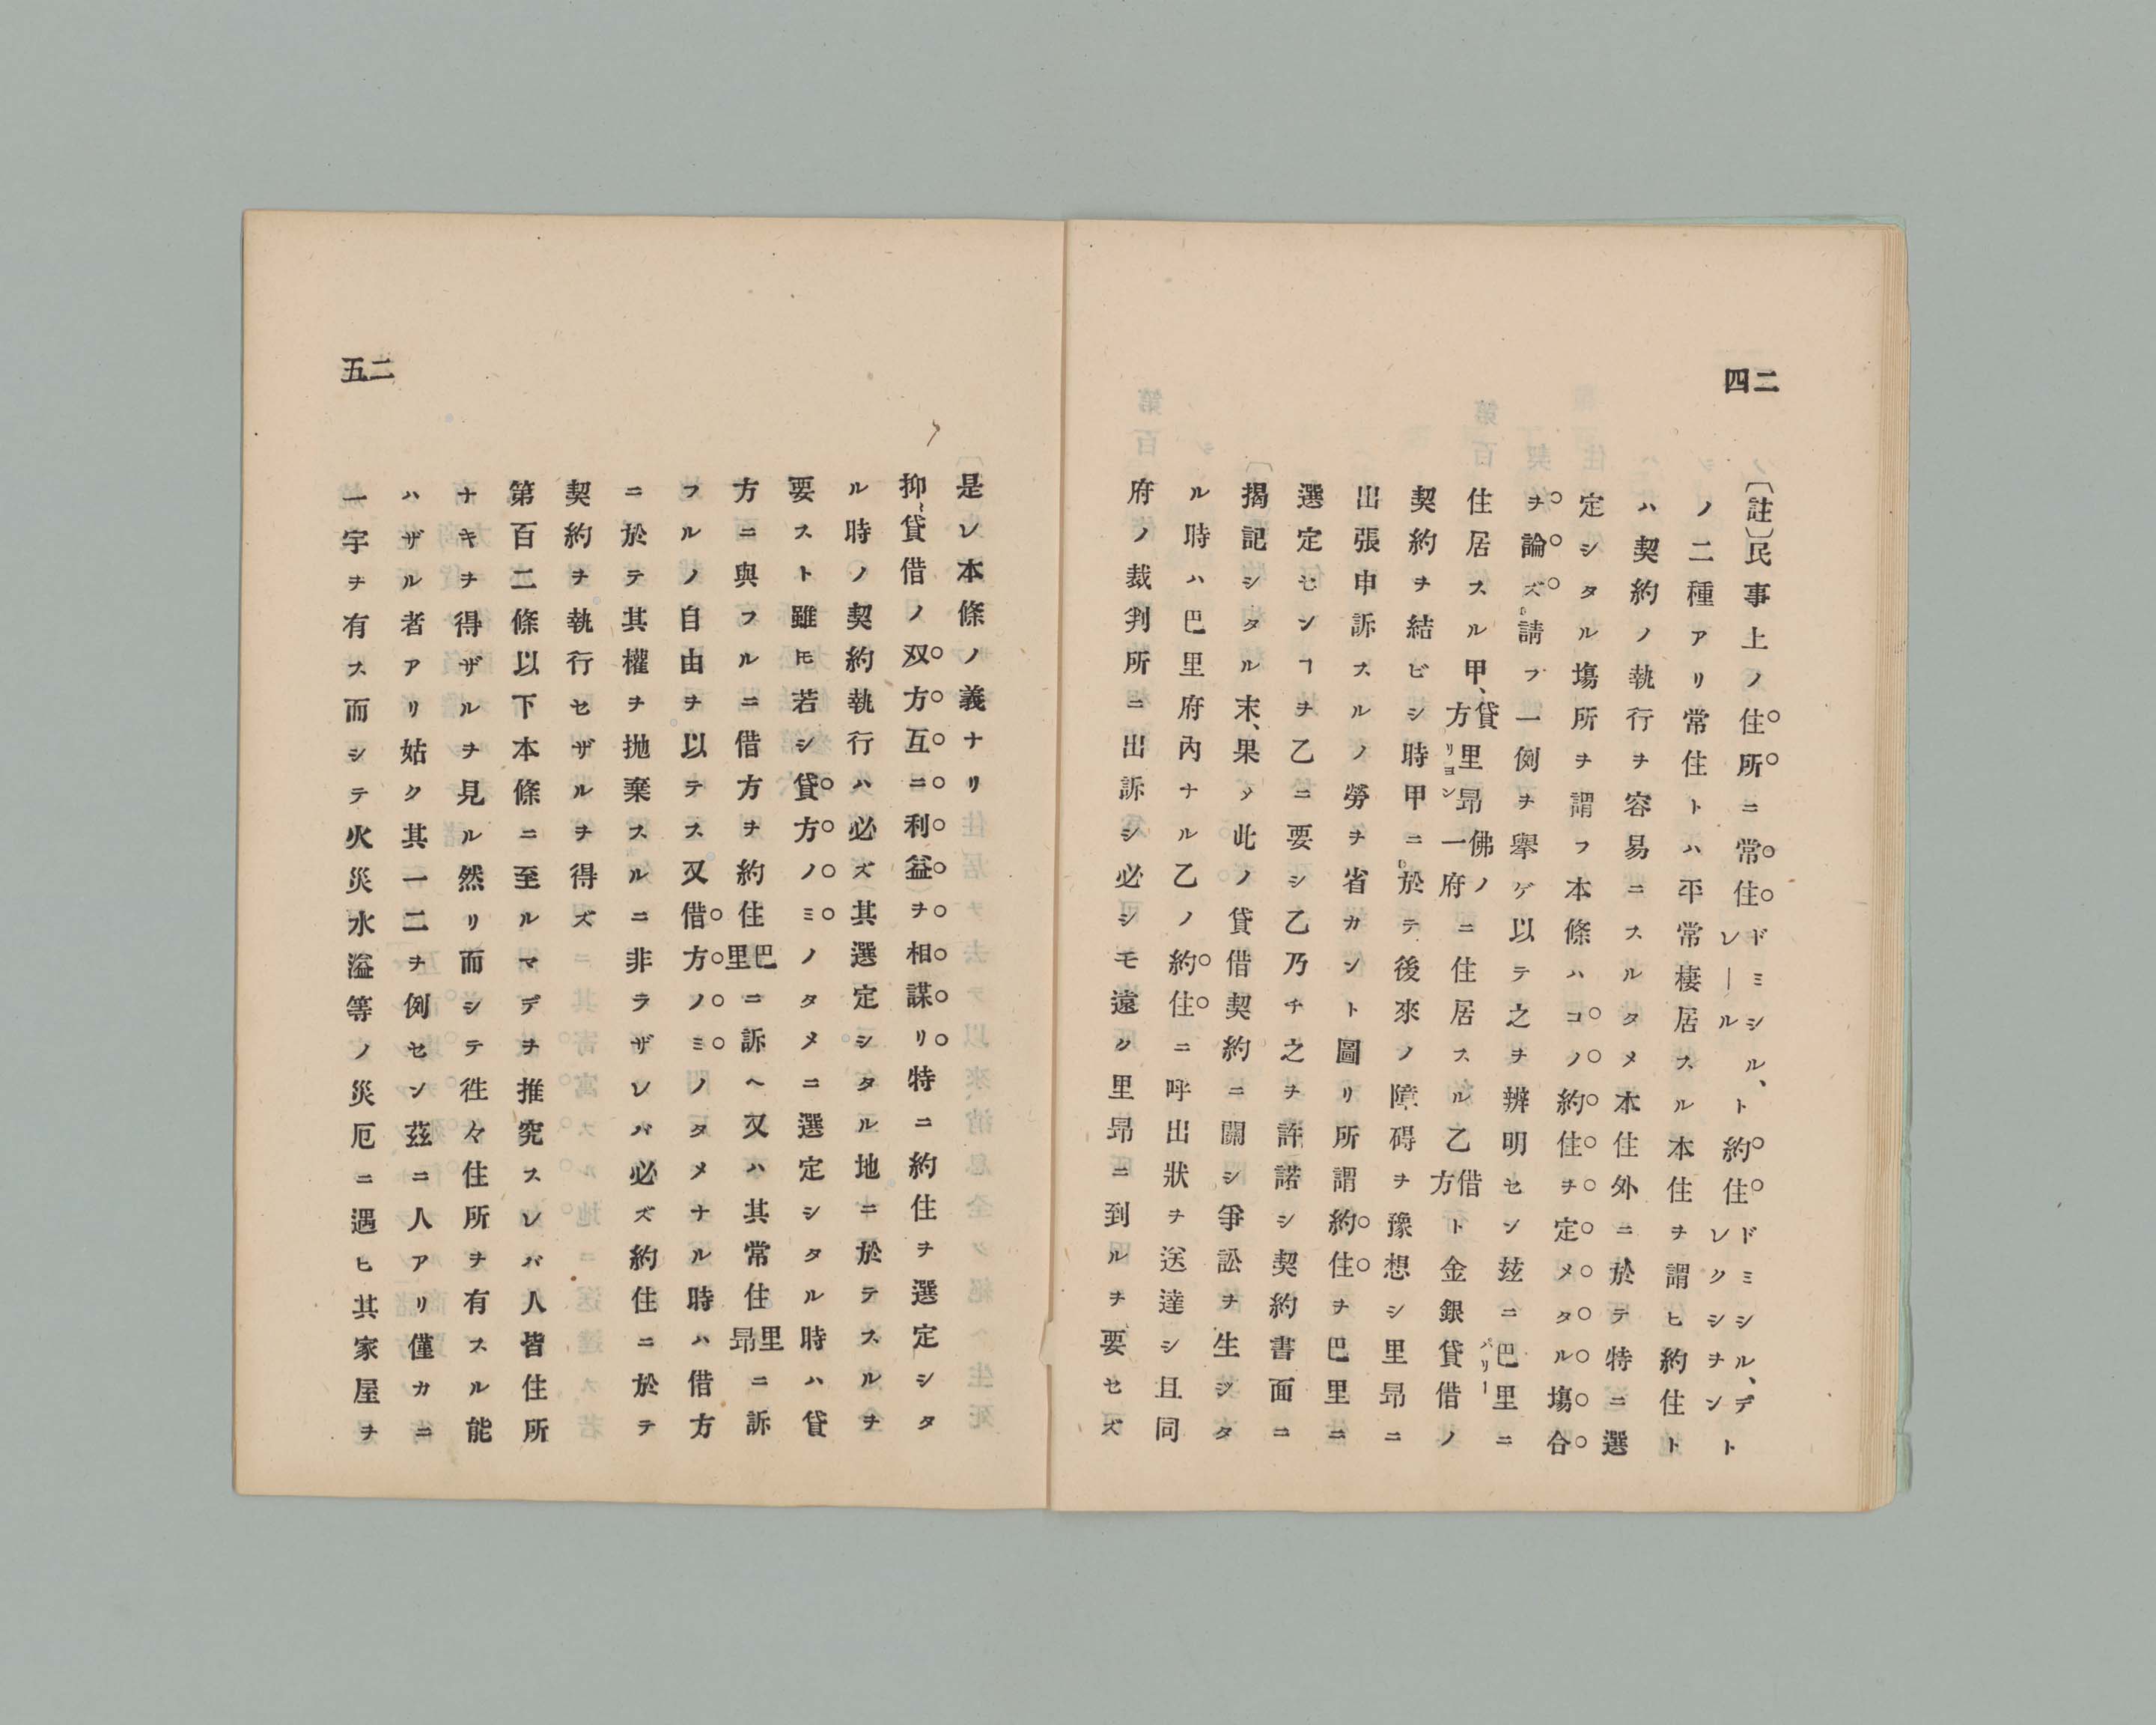 二四
〔註〕民事上ノ住所ニ常住ドミシル、レール ト約住ドミシル、デレクシヲン ト
ノ二種アリ常住トハ平常棲居スル本住ヲ謂ヒ約住ト
ハ契約ノ執行ヲ容易ニスルタメ本住外ニ於テ特ニ選
定シタル塲所ヲ謂フ本條ハコノ約住ヲ定メタル塲合
ヲ論ズ請フ一例ヲ擧ゲ以テ之ヲ辨明セン玆ニ巴里ニ
住居スル甲、貸方里昂佛ノ一府ニ住居スル乙借方ト金銀貸借ノ
契約ヲ結ビシ時甲ニ於テ後來ノ障碍ヲ豫想シ里昂ニ
出張申訴スルノ勞ヲ省カント圖リ所謂約住ヲ巴里ニ
選定セシヿヲ乙ニ要シ乙乃チ之ヲ許諾シ契約書面ニ
揭記シタル末、果〆此ノ貸借契約ニ關シ爭訟ヲ生シタ
ル時ハ巴里府內ナル乙ノ約住ニ呼出狀ヲ送達シ且同
府ノ裁判所ニ出訴シ必シモ遠ク里昂ニ到ルヲ要セズ
二五
是レ本條ノ義ナリ
抑貸借ノ双方互ニ利益ヲ相謀リ特ニ約住ヲ選定シタ
ル時ノ契約執行ハ必ズ其選定シタル地ニ於テスルヲ
要スト雖𪜈若シ貸方ノミノタメニ選定シタル時ハ貸
方ニ與フルニ借方ヲ約住巴里ニ訴ヘ又ハ其常住里昂ニ訴
フルノ自由ヲ以テス又借方ノミノタメナル時ハ借方
ニ於テ其權ヲ抛棄スルニ非ラザレバ必ズ約住ニ於テ
契約ヲ執行セザルヲ得ズ
第百二條以下本條ニ至ルマデヲ推究スレバ人皆住所
ナキヲ得ザルヲ見ル然リ而シテ徃々住所ヲ有スル能
ハザル者アリ姑ク其一二ヲ例セン茲ニ人アリ僅カニ
一宇ヲ有ス而シテ火災水溢等ノ災厄ニ遇ヒ其家屋ヲ